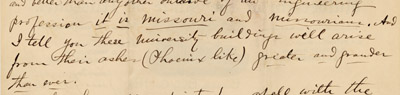 and better man than outside of the engineering
profession it is missouri and missourians. And
I tell you these university buildings will arise
from their ashes (Phoenix like) greater and grander
than ever.
with the